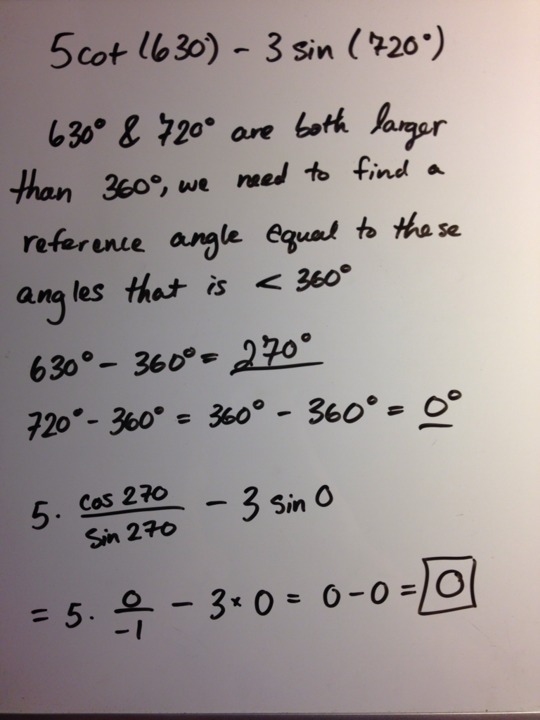 5cot (630°) - 3 sin (720°)
630° & 720° are both larger
than 360°, we need to find a
reference angle equal to these
angles that is < 360°
630° - 360° = 270°
720° - 360° = 360° - 360° = 0°
5 · cos 270 / sin 270 - 3 sin 0
= 5 · 0 / -1 - 3 × 0 = 0 - 0 = 0